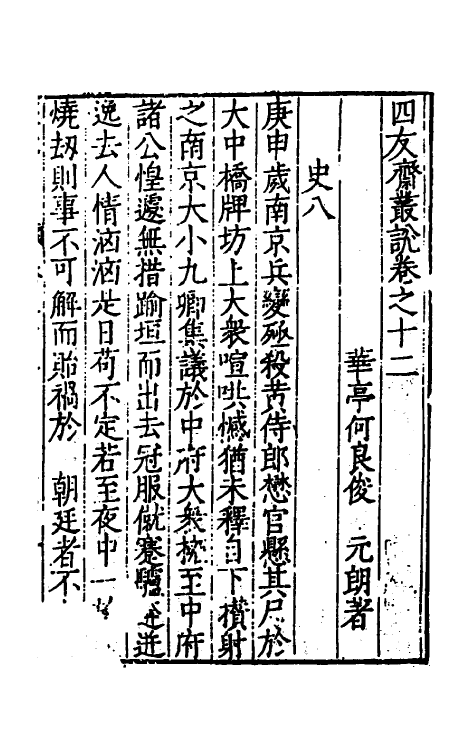 四友齋叢說卷之十二
華亭何良俊 元朗著
史八
庚申歲南京兵變殛殺黃侍郎懋官懸其尸於
大中橋牌坊上大衆喧哄憾猶未釋自下攢射
之南京大小九卿集議於中府大衆擁至中府
諸公惶遽無措踰垣而出去冠服僦蹇驢逬
逸去人情洶洶是日苟不定若至夜中一
燒刼則事不可解而貽禍於 朝廷者不